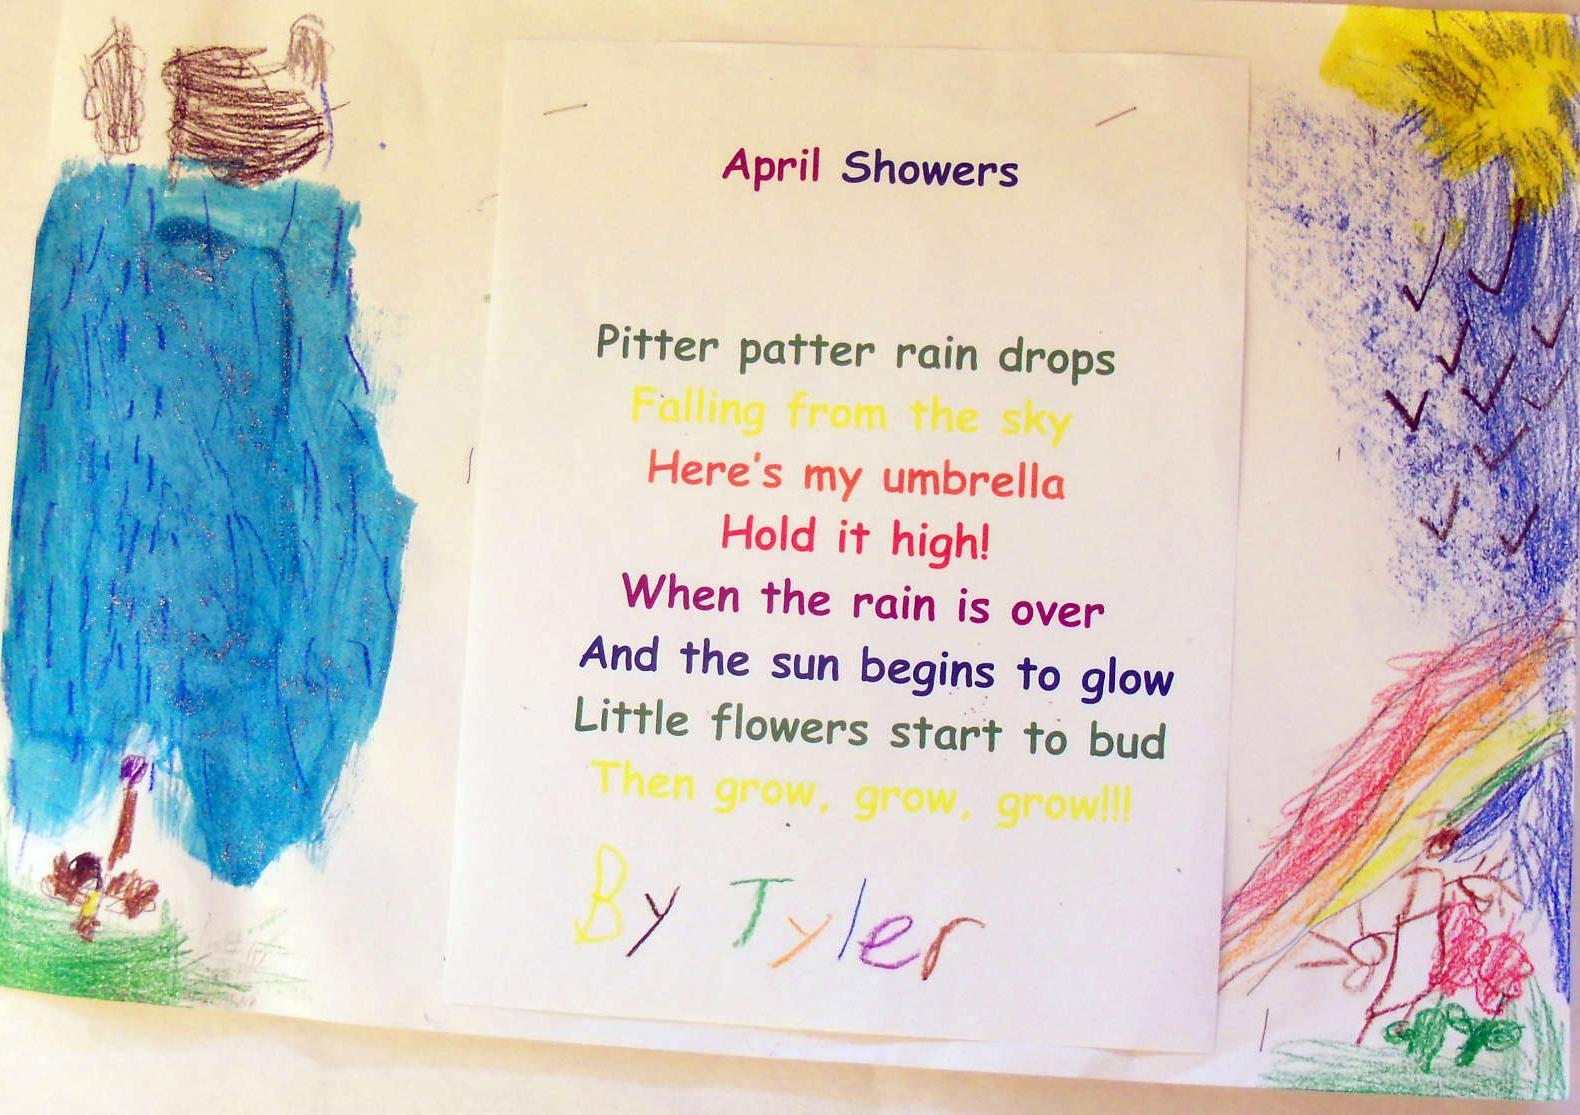 April Showers
Pitter patter rain drops
Falling from the sky
Here's my umbrella
Hold it high!
When the rain is over
And the sun begins to glow
Little flowers start to bud
Then grow, grow, grow!!!
By Tyler